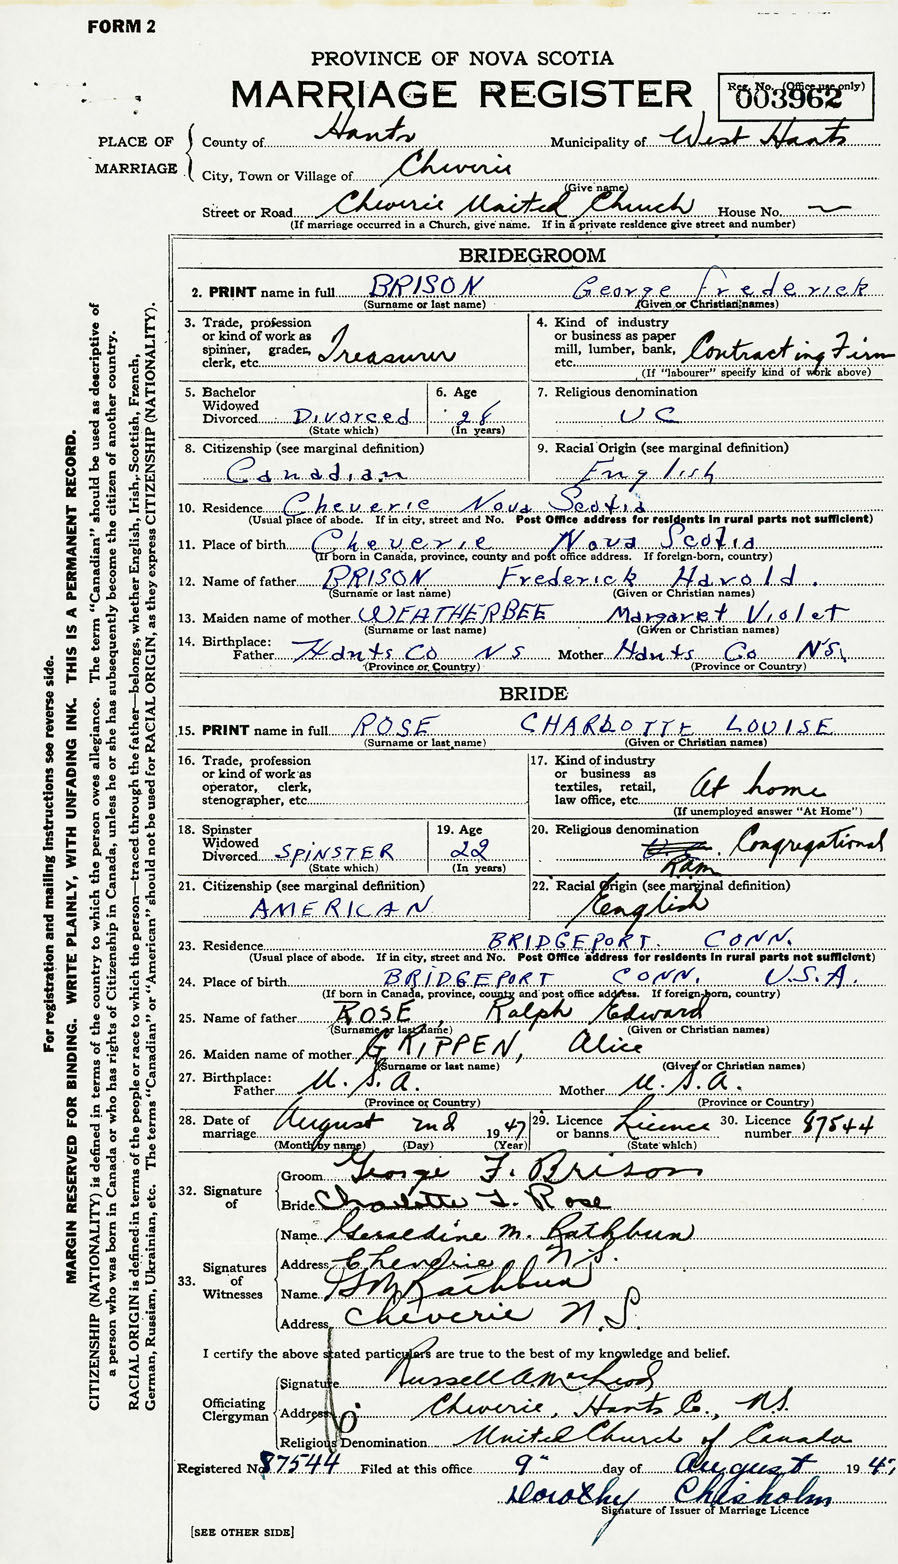 FORM 2
PROVINCE OF NOVA SCOTIA
MARRIAGE REGISTER
Reg. No. (Office use only)
003962
PLACE OF MARRIAGE
County of Hants Municipality of West Hants
City, Town or Village of Cheverie
(Give name)
Street or Road Cheverie United Church House No. —
(If marriage occurred in a Church, give name. If in a private residence give street and number)
BRIDEGROOM
2. PRINT name in full BRISON George Frederick
(Surname or last name) (Given or Christian names)
3. Trade, profession or kind of work as spinner, grader, clerk, etc. Treasurer
4. Kind of industry or business as paper mill, lumber, bank, etc. Contracting Firm
(If "labourer" specify kind of work above)
5. Bachelor Widowed Divorced Divorced
(State which)
6. Age 28
(In years)
7. Religious denomination
U C
8. Citizenship (see marginal definition)
Canadian
9. Racial Origin (see marginal definition)
English
10. Residence Cheverie Nova Scotia
(Usual place of abode. If in city, street and No. Post Office address for residents in rural parts not sufficient)
11. Place of birth Cheverie Nova Scotia
(If born in Canada, province, county and post office address. If foreign-born, country)
12. Name of father BRISON Frederick Harold.
(Surname or last name) (Given or Christian names)
13. Maiden name of mother WEATHERBEE Margaret Violet
(Surname or last name) (Given or Christian names)
14. Birthplace:
Father Hants Co N S Mother Hants Co N S
(Province or Country) (Province or Country)
BRIDE
15. PRINT name in full ROSE CHARLOTTE LOUISE
(Surname or last name) (Given or Christian names)
16. Trade, profession or kind of work as operator, clerk, stenographer, etc.
17. Kind of industry or business as textiles, retail, law office, etc. At home
(If unemployed answer "At Home")
18. Spinster Widowed Divorced SPINSTER
(State which)
19. Age 22
(In years)
20. Religious denomination
Congregational
Ram
21. Citizenship (see marginal definition)
AMERICAN
22. Racial Origin (see marginal definition)
English
23. Residence BRIDGEPORT. CONN.
(Usual place of abode. If in city, street and No. Post Office address for residents in rural parts not sufficient)
24. Place of birth BRIDGEPORT CONN. U.S.A.
(If born in Canada, province, county and post office address. If foreign-born, country)
25. Name of father ROSE, Ralph Edward
(Surname or last name) (Given or Christian names)
26. Maiden name of mother GRIPPEN, Alice
(Surname or last name) (Given or Christian names)
27. Birthplace:
Father U.S.A. Mother U.S.A.
(Province or Country) (Province or Country)
28. Date of marriage August 2nd 1947
(Month by name) (Day) (Year)
29. Licence or banns Licence
(State which)
30. Licence number 87544
32. Signature of
Groom George F. Brison
Bride Charlotte L. Rose
33. Signatures of Witnesses
Name Geraldine M. Rathbun
Address Cheverie N.S.
Name Rathbun
Address Cheverie N.S.
I certify the above stated particulars are true to the best of my knowledge and belief.
Officiating Clergyman
Signature Russell A MacLeod
Address Cheverie, Hants Co., N.S.
Religious Denomination United Church of Canada
Registered No. 87544 Filed at this office 9" day of August 1947
Dorothy Chisholm
Signature of Issuer of Marriage Licence
[SEE OTHER SIDE]
For registration and mailing instructions see reverse side.
MARGIN RESERVED FOR BINDING. WRITE PLAINLY, WITH UNFADING INK. THIS IS A PERMANENT RECORD.
CITIZENSHIP (NATIONALITY) is defined in terms of the country to which the person owes allegiance. The term "Canadian" should be used as descriptive of
a person who was born in Canada or who has rights of Citizenship in Canada, unless he or she has subsequently become the citizen of another country.
RACIAL ORIGIN is defined in terms of the people or race to which the person—traced through the father—belongs, whether English, Irish, Scottish, French,
German, Russian, Ukrainian, etc. The terms "Canadian" or "American" should not be used for RACIAL ORIGIN, as they express CITIZENSHIP (NATIONALITY).